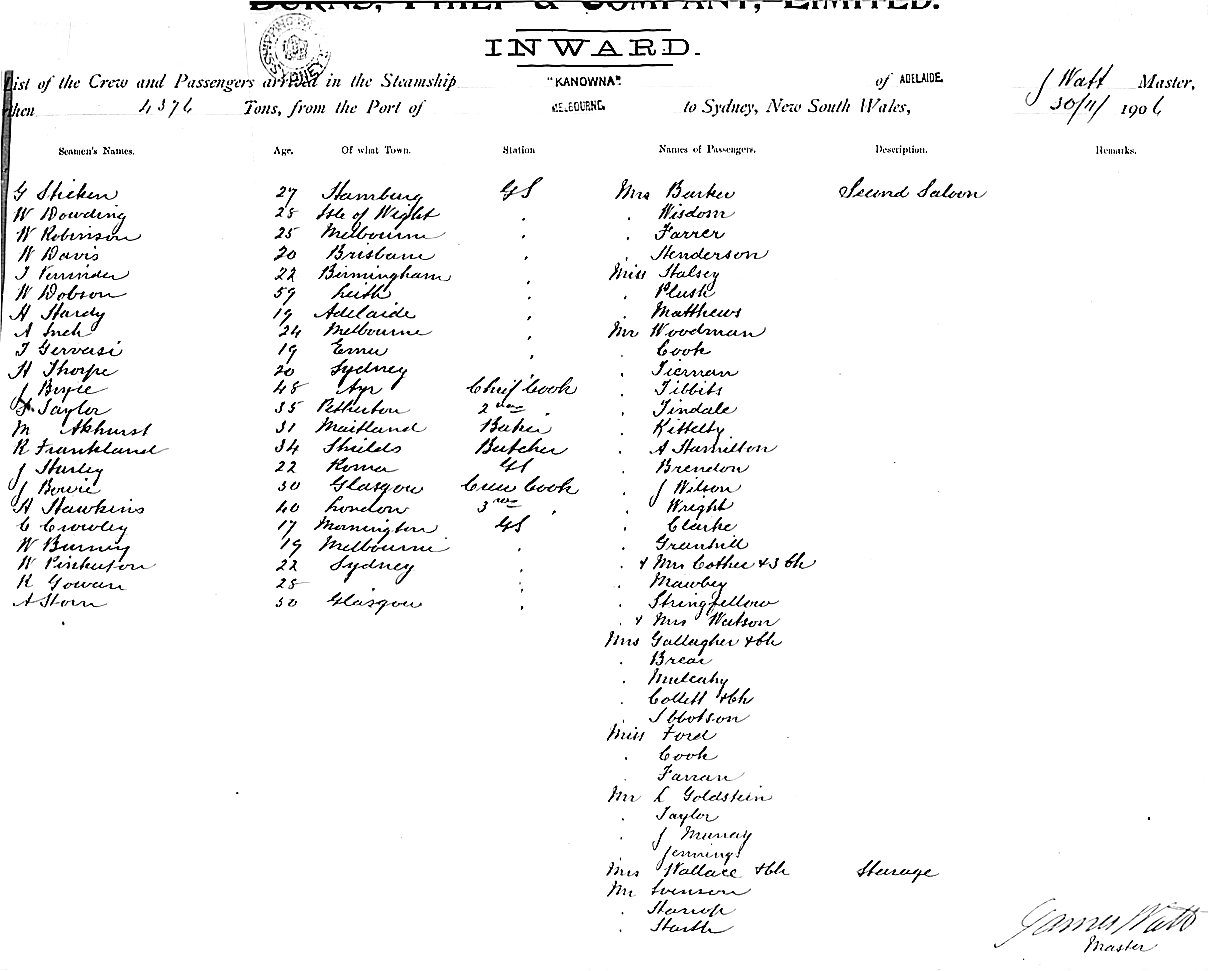 BURNS, PHILP & COMPANY, LIMITED.
INWARD.
List of the Crew and Passengers arrived in the Steamship "KANOWNA" of ADELAIDE. J Watt Master,
then 4376 Tons, from the Port of MELBOURNE. to Sydney, New South Wales, 30/11/1906
Seamen's Names. Age. Of what Town. Station Names of Passengers. Description. Remarks.
G Sticken 27 Hamburg GS Mrs Barker Second Saloon
W Dowding 28 Isle of Wight . . Wisdom
W Robinson 25 Melbourne . . Farrer
W Davis 20 Brisbane . . Henderson
22 Birmingham . Miss Halsey
W Dobson 59 Leith . . Plush
H Hardy 19 Adelaide . . Matthews
A Inch 24 Melbourne . Mr Woodman
T Gervasi 19 . . Cook
H Thorpe 20 Sydney . . Tiernan
J Boyle 48 Ayr Chief Cook . Tibbits
Taylor 35 Petherton 2nd . . Tindale
M Akhurst 31 Maitland Baker . Kittelty
R Frankland 34 Shields Butcher . A Hamilton
J Hurley 22 Roma GS . Brendon
J Bowie 30 Glasgow Crew Cook . J Wilson
H Hawkins 40 London 3rd . . Wright
C Crowley 17 Mornington GS . Clarke
W Burney 19 Melbourne . . Greenhill
W Pinkerton 22 Sydney . . & Mrs Cother & 3 Ch
R Gowan 28 . . Mawbey
A Storn 30 Glasgow . . Stringfellow
. & Mrs Watson
Mrs Gallagher & Ch
. Brear
. Mulcahy
. Collett & Ch
. Ibbotson
Miss Ford
. Cook
. Farran
Mr L Goldstein
. Taylor
. J Murray
. Jennings
Mrs Wallace & Ch Steerage
Mr Svenson
. Harrop
. Harth
James Watt
Master